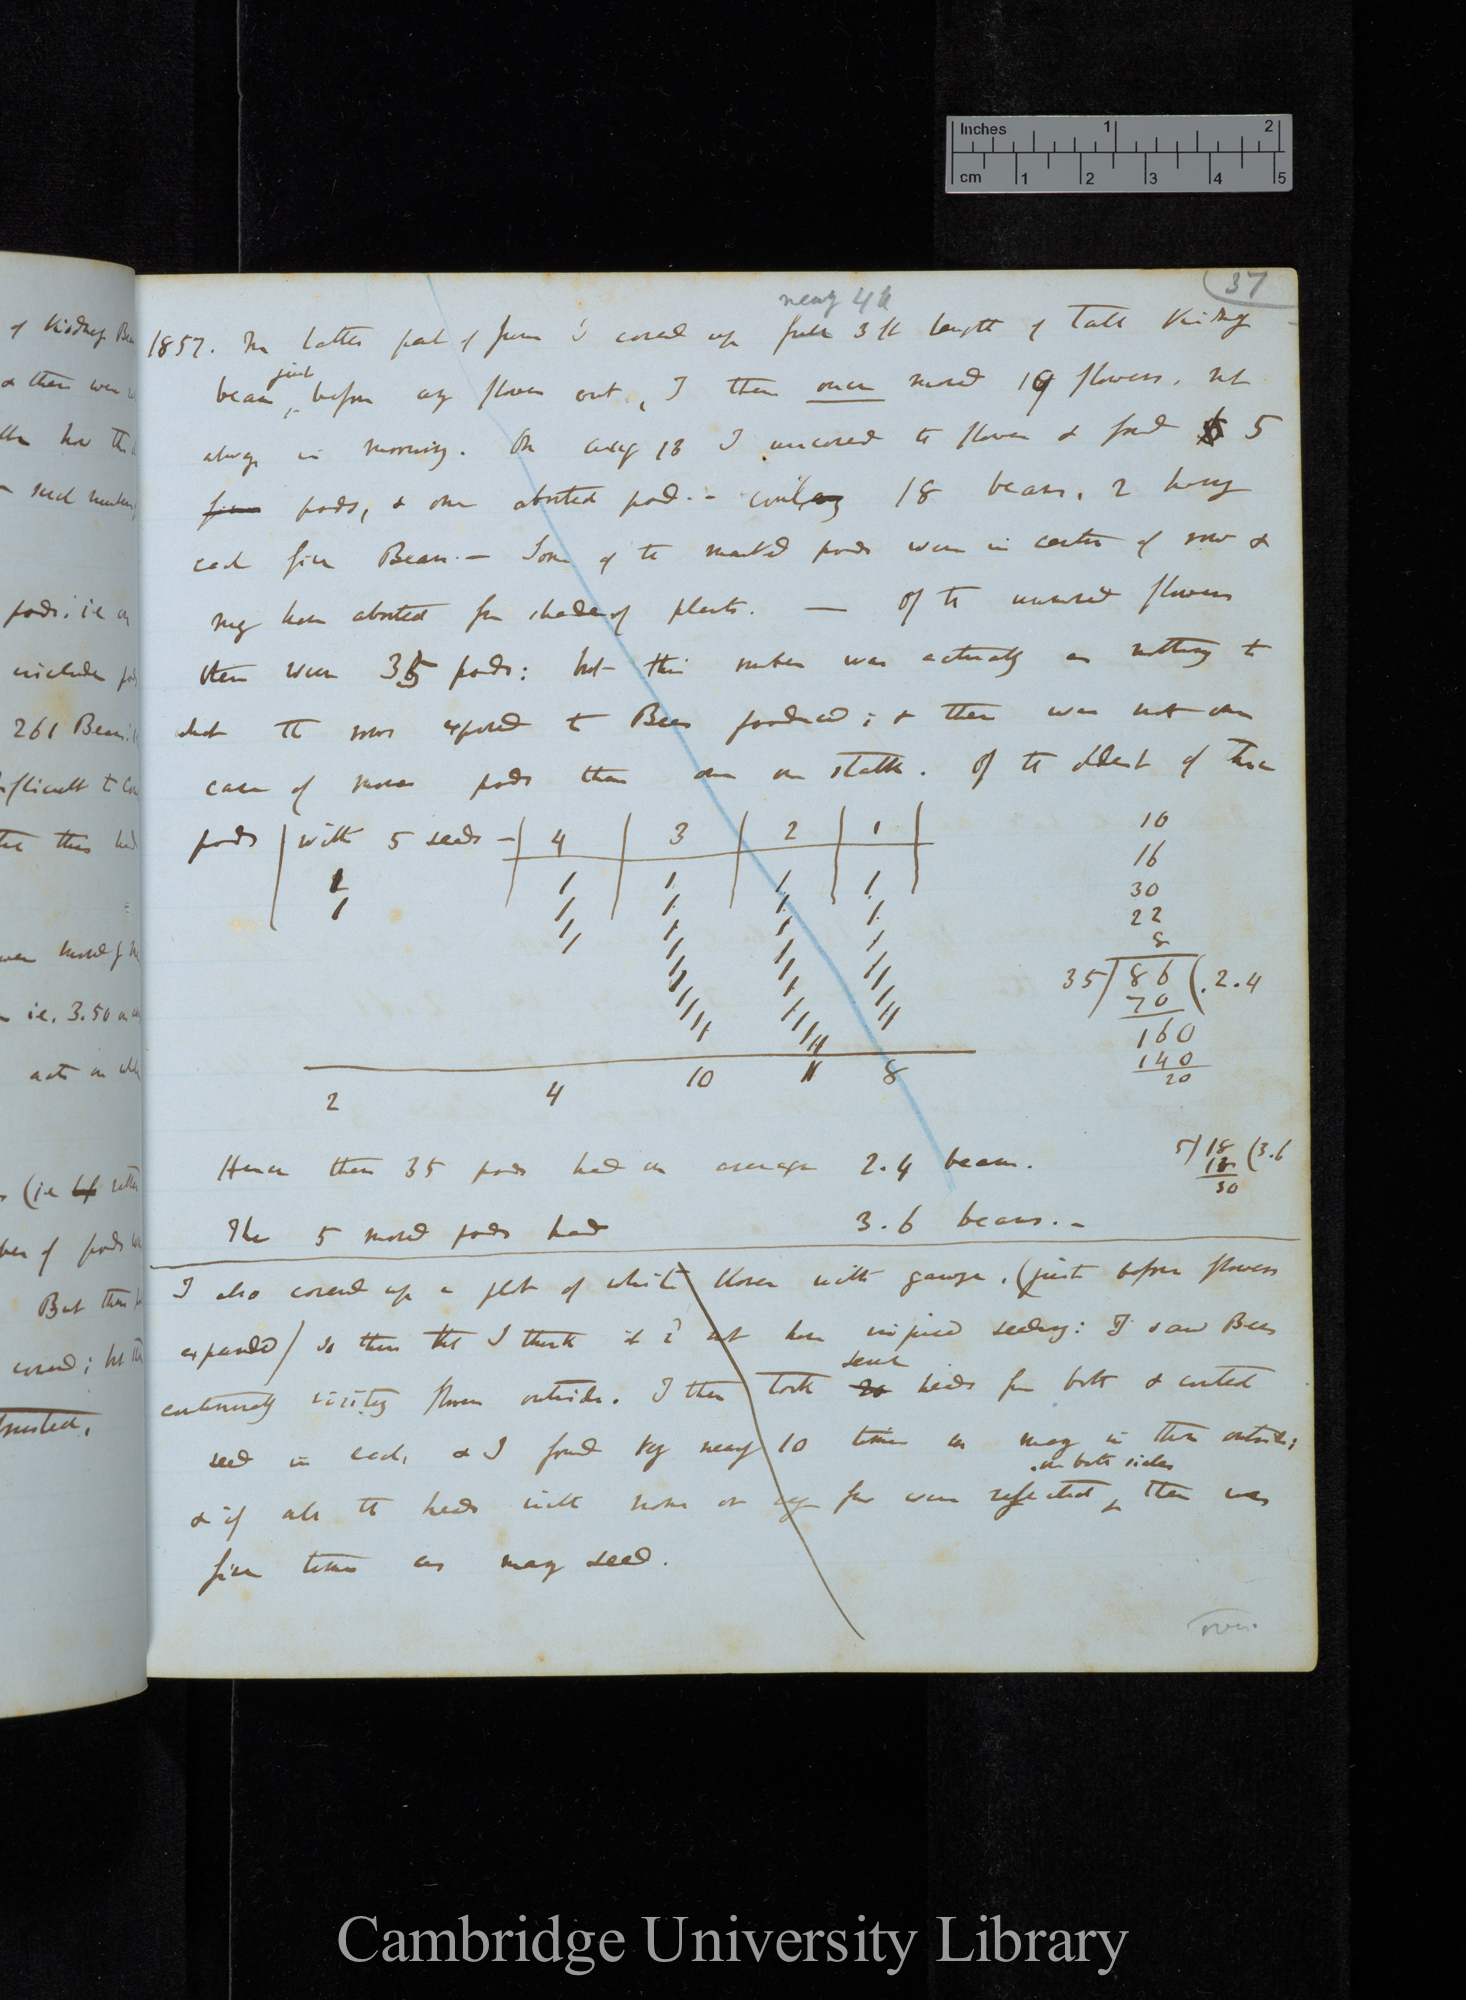 Inches 1 2
cm 1 2 3 4 5
37
nearly 4 ft
1857. In latter part of June I covered up full 3 ft length of Tall Kidney
just
bean, before any flower out, I then once moved 19 flowers, not
always in morning. On Aug 13 I uncovered the flowers & found 5
five pods, & one aborted pod. — containing 18 beans, 2 having
each five Beans. — Some of the marked pods were in centre of row &
may have aborted from shade of plants. — Of the unmoved flowers
there were 35 pods: but this number was actually as nothing to
what the rows exposed to Bees produced; & there was not one
case of more pods than one on stalk. Of the oldest of these
pods with 5 seeds — 4 3 2 1
10
16
30
22
8
35) 86 (.2.4
70
160
140
20
2 4 10 11 8
Hence these 35 pods had on average 2.4 beans.
5) 18 (3.6
30
The 5 moved pods had 3.6 beans. —
I also covered up a plot of white clover with gauze, (just before flowers
expanded) so thin that I think it not have injured seeding: I saw Bees
continually visiting flowers outside. I then took heads from both & counted
seed in each, & I found very nearly 10 times as many in those outside;
on both sides
& if all the heads with none or very few were rejected, there was
five times as many seed.
over
of Kidney Bean
& there were
such number
pods; i.e.
include pods
261 Beans
difficult to
i.e. 3.50
acts on
(i.e.
of pods
But these
covered; but
trusted.
Cambridge University Library